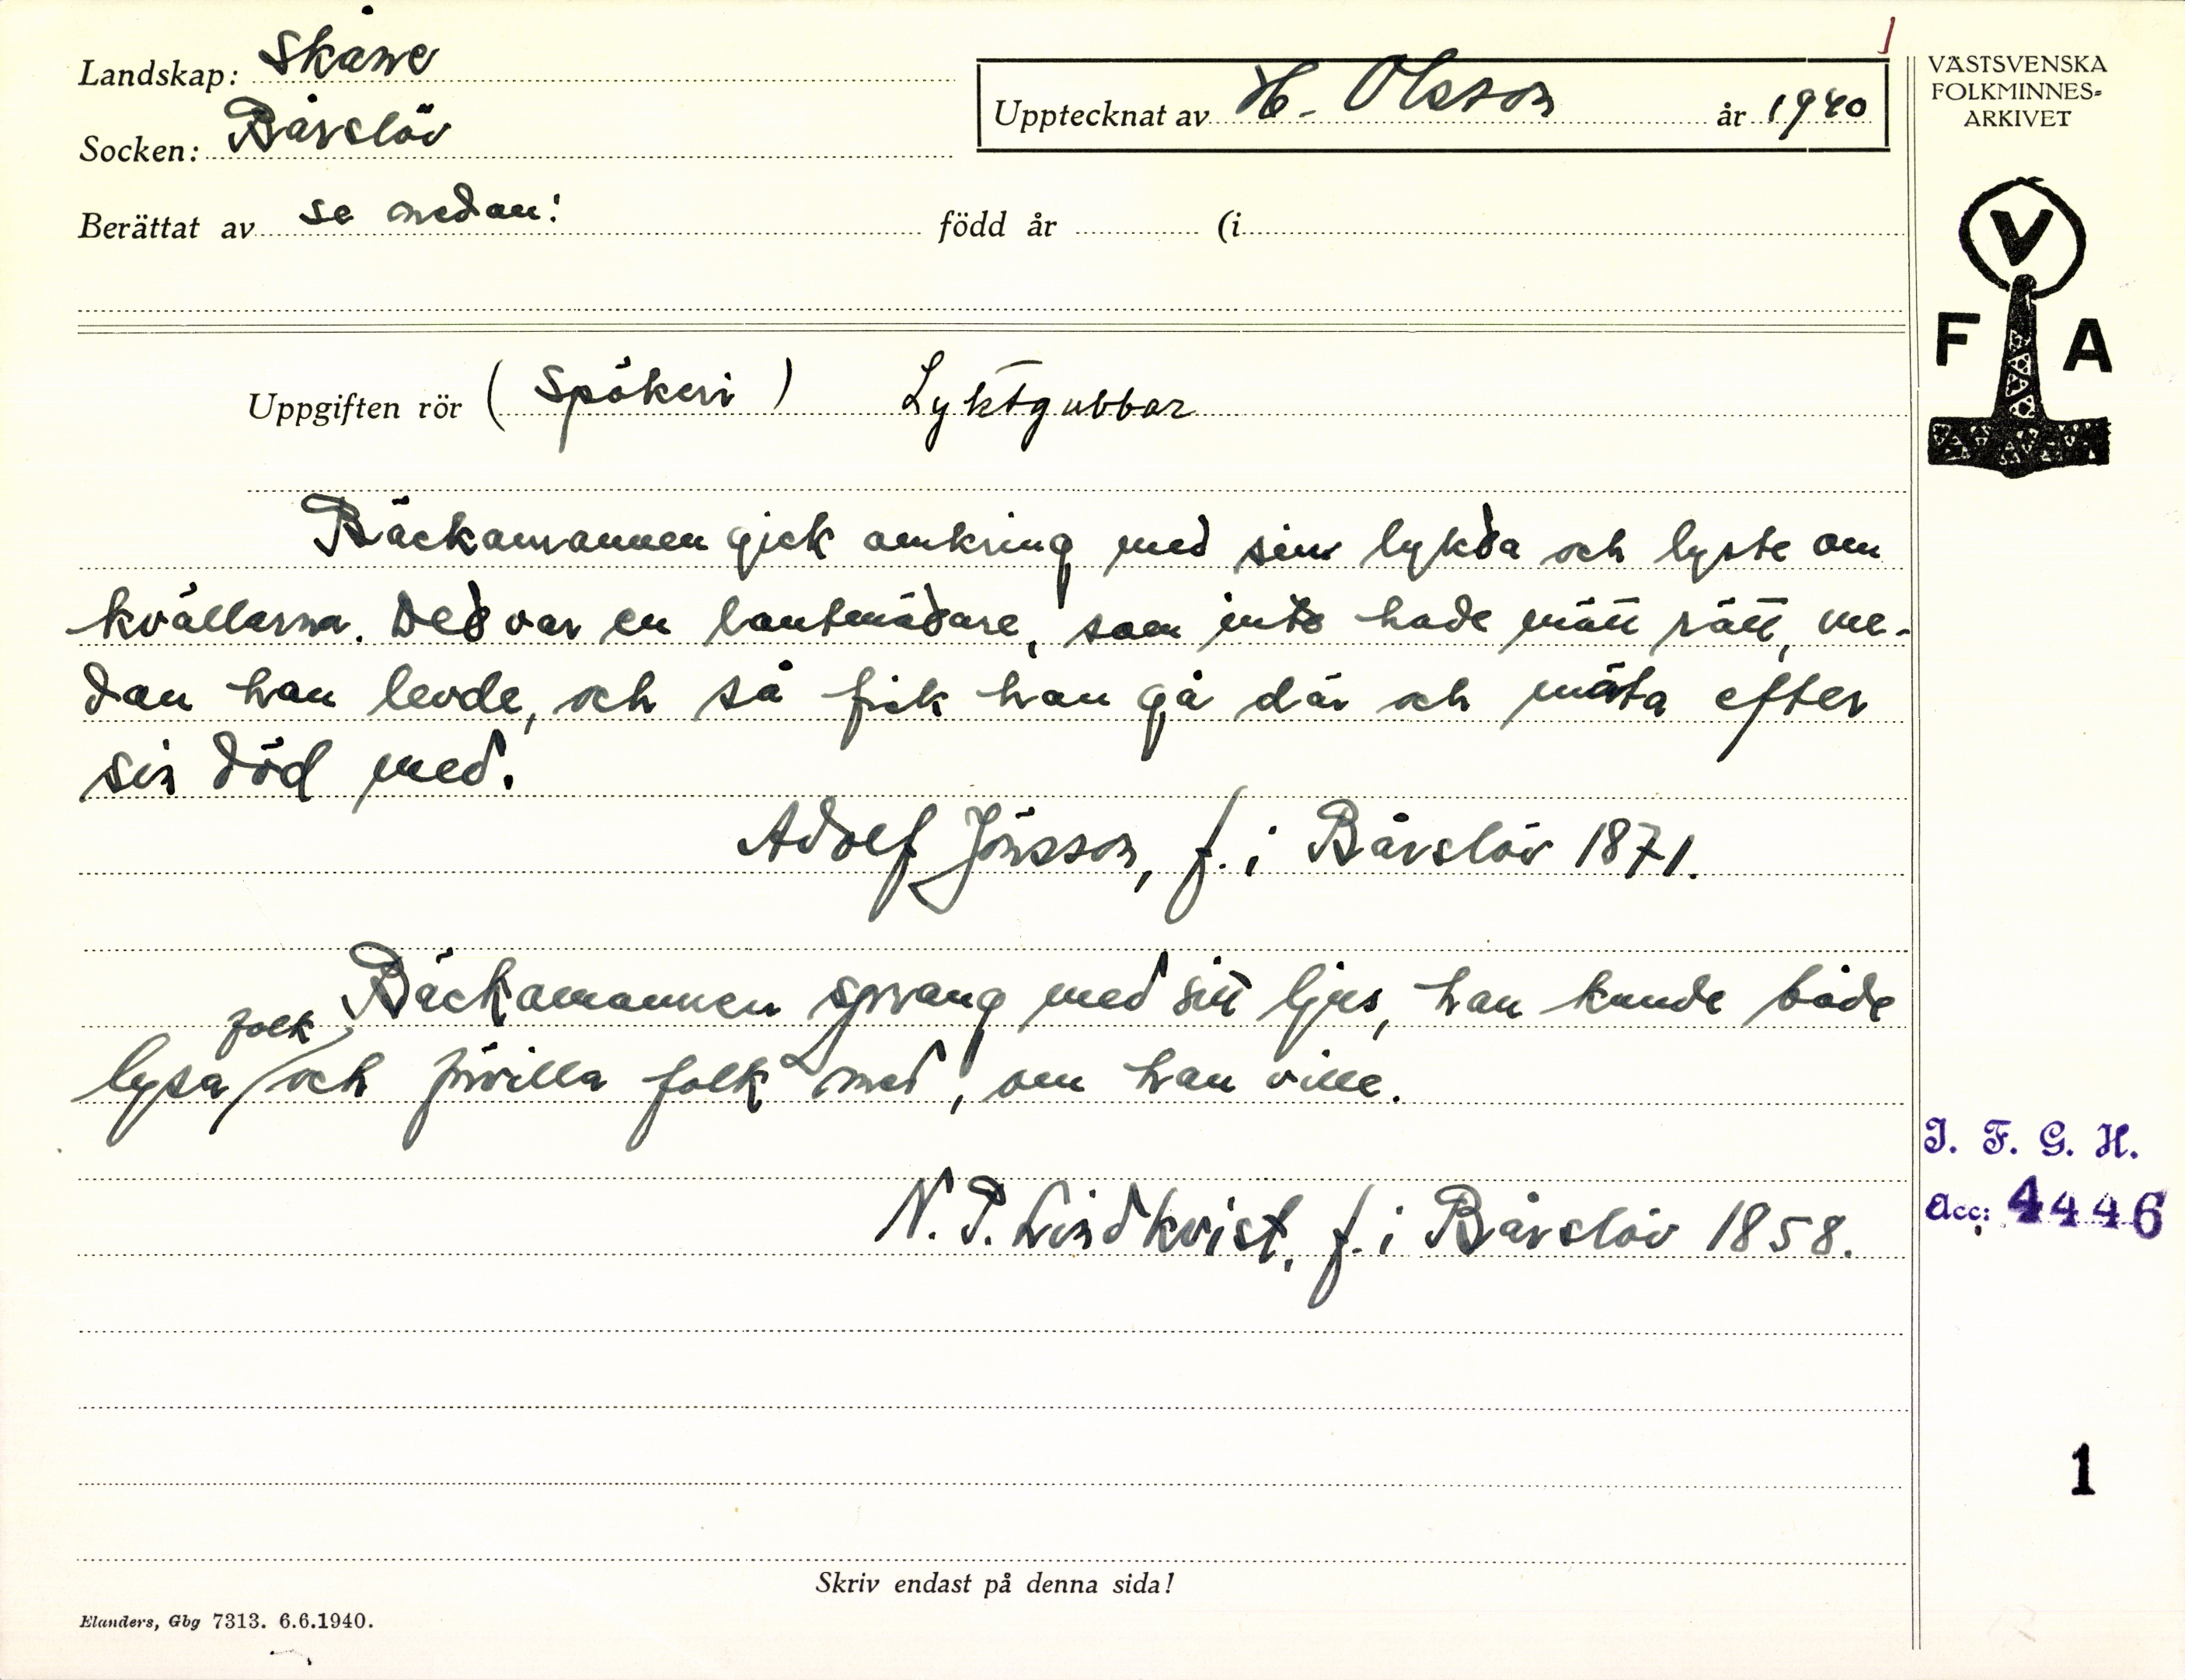 Landskap: Skåne
Socken: Bårslöv
Upptecknat av H. Olsson år 1940
Berättat av se nedan! född år (i
Uppgiften rör (Spökeri) Lyktgubbar
Bäckamannen gick omkring med sin lykta och lyste om
kvällarna. Det var en lantmätare, som inte hade mätt rätt, me-
dan han levde, och så fick han gå där och mäta efter
sin död med.
Adolf Jönsson, f. i Bårslöv 1871.
Bäckamannen sprang med sitt ljus, han kunde både
lysa folk och förvilla folk med, om han ville.
N. P. Lindkvist, f. i Bårslöv 1858.
Skriv endast på denna sida!
Elanders, Gbg 7313. 6.6.1940.
1
VÄSTSVENSKA
FOLKMINNES-
ARKIVET
V
F A
I. F. G. H.
Acc: 4446
1